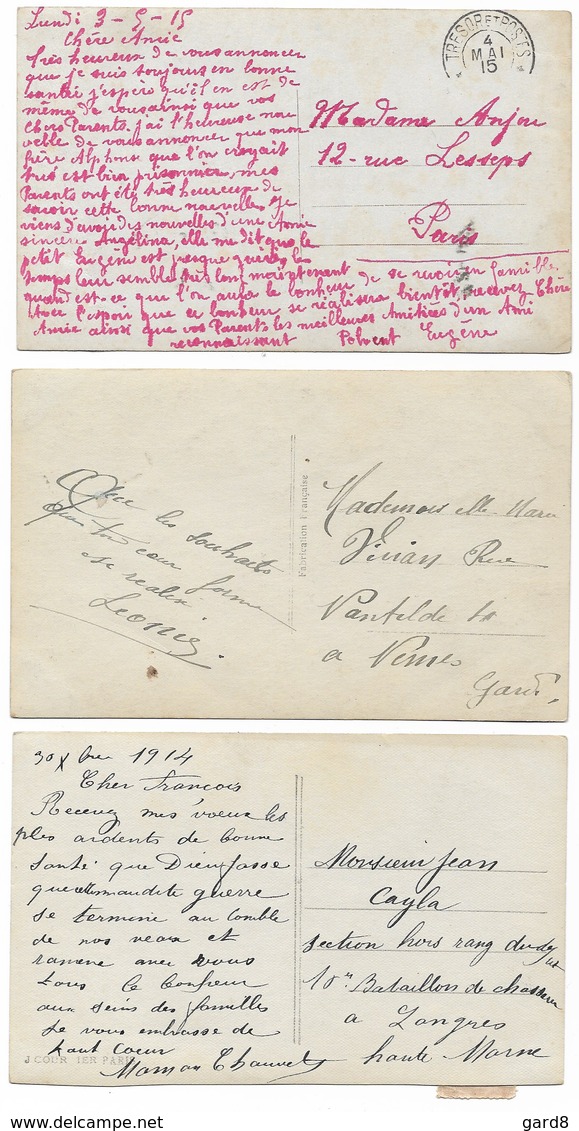 Lundi 3-5-15
Chère Amie
Très heureux de vous annoncer
que je suis toujours en bonne
santé j'espère qu'il en est de
même de vous ainsi que vos
Chers Parents. j'ai l'heureuse nou
velle de vous annoncer que mon
frère Alphonse que l'on croyait
est bien prisonnier, mes
Parents ont été très heureux de
savoir cette bonne nouvelle, je
viens d'avoir des nouvelles d'une Amie
sincère Angélina, elle me dit que le
petit Eugène est presque guéri, le
temps leur semble long maintenant de se revoir en famille
quand est-ce que l'on aura le bonheur
Avec l'espoir que ce bonheur se réalisera bientôt recevez Chère
Amie ainsi que vos Parents les meilleures Amitiées d'un Ami
reconnaissant Eugène
TRESOR ET POSTES
4
MAI
15
Madame Anjou
12-rue Lesseps
Paris
Avec les souhaits
que ton cœur forme
se realise
Leonie
Fabrication Française
Mademoiselle Marie
Vivian Rue
a Nimes
Gard.
30 Xbre 1914
Cher Francois
Recevez mes voeux les
ples ardents de bonne
santé que Dieu fasse
que cette maudite guerre
se termine au comble
de nos veux et
ramene avec vous
tous le bonheur
aux seins des familles
Je vous embrasse de
tout Coeur
Maman Chauvet
J COUR 1ER PARIS
Monsieur Jean
Cayla
section hors rang
10me Bataillon de chasseur
a Langres
haute-Marne
gard8